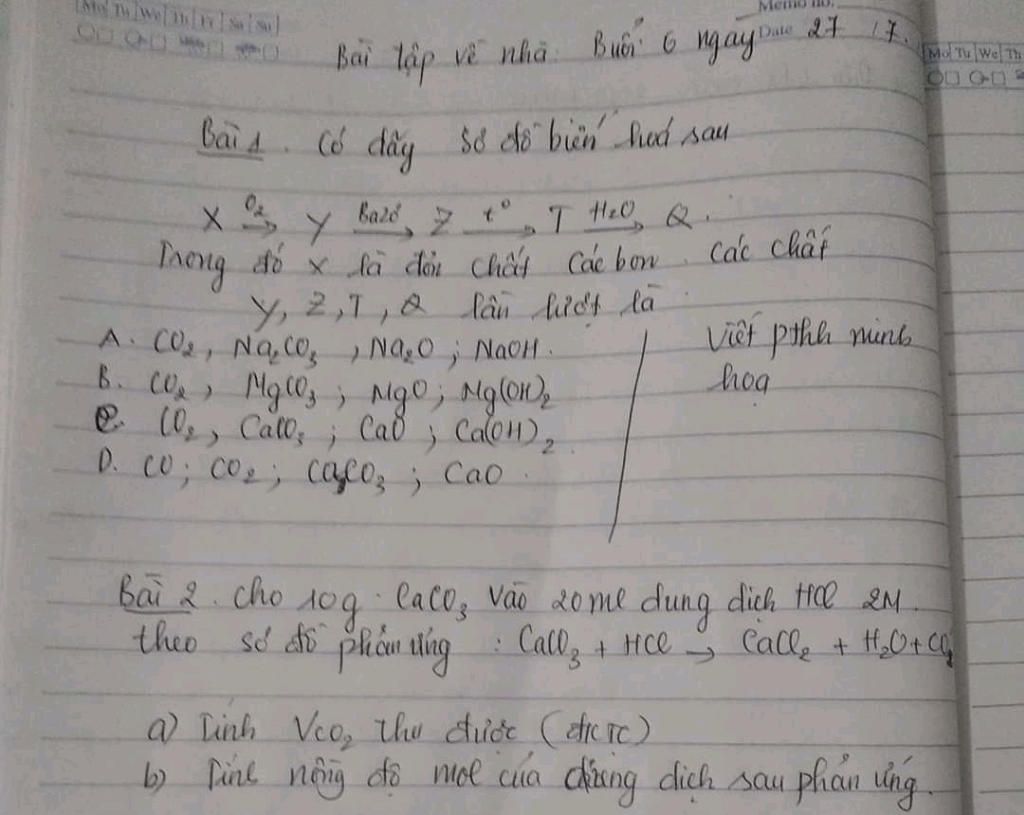 Mo Tu We Th Fr Sa Su
Memo no.
Date 27 / 7.
Mo Tu We Th
Bài tập về nhà. Buổi 6 ngày
Bài 1. Có dãy sơ đồ biến hoá sau
X O₂→ Y Bazơ→ Z t°→ T H₂O→ Q.
Trong đó X là đơn chất Các bon. Các chất
Y, Z, T, Q lần lượt là
A. CO₂, Na₂CO₃, Na₂O; NaOH.
B. CO₂, MgCO₃; MgO; Mg(OH)₂
C. CO₂, CaCO₃; CaO; Ca(OH)₂.
D. CO; CO₂; CaCO₃; CaO.
Viết pthh minh
hoạ
Bài 2. Cho 10g CaCO₃ vào 20ml dung dịch HCl 2M.
theo sơ đồ phản ứng: CaCO₃ + HCl → CaCl₂ + H₂O + CO₂
a) Tính VCO₂ thu được (đktc)
b) Tính nồng độ mol của dung dịch sau phản ứng.